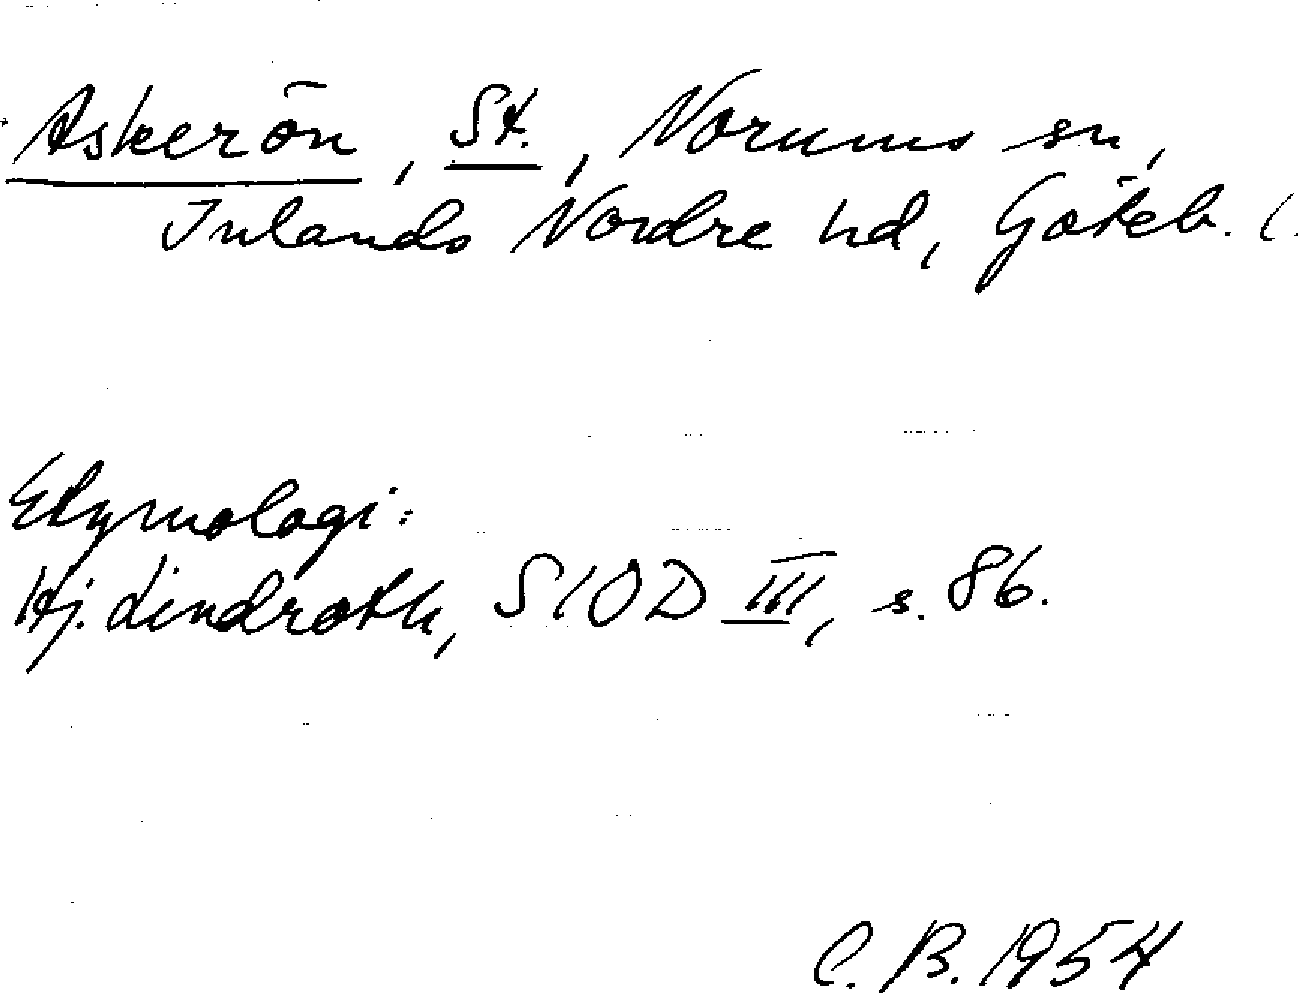 Askerön, St., Norums sn,
Inlands Nordre hd, Göteb. l.
Etymologi:
Hj. Lindroth, SIOD III, s. 86.
C. B. 1954